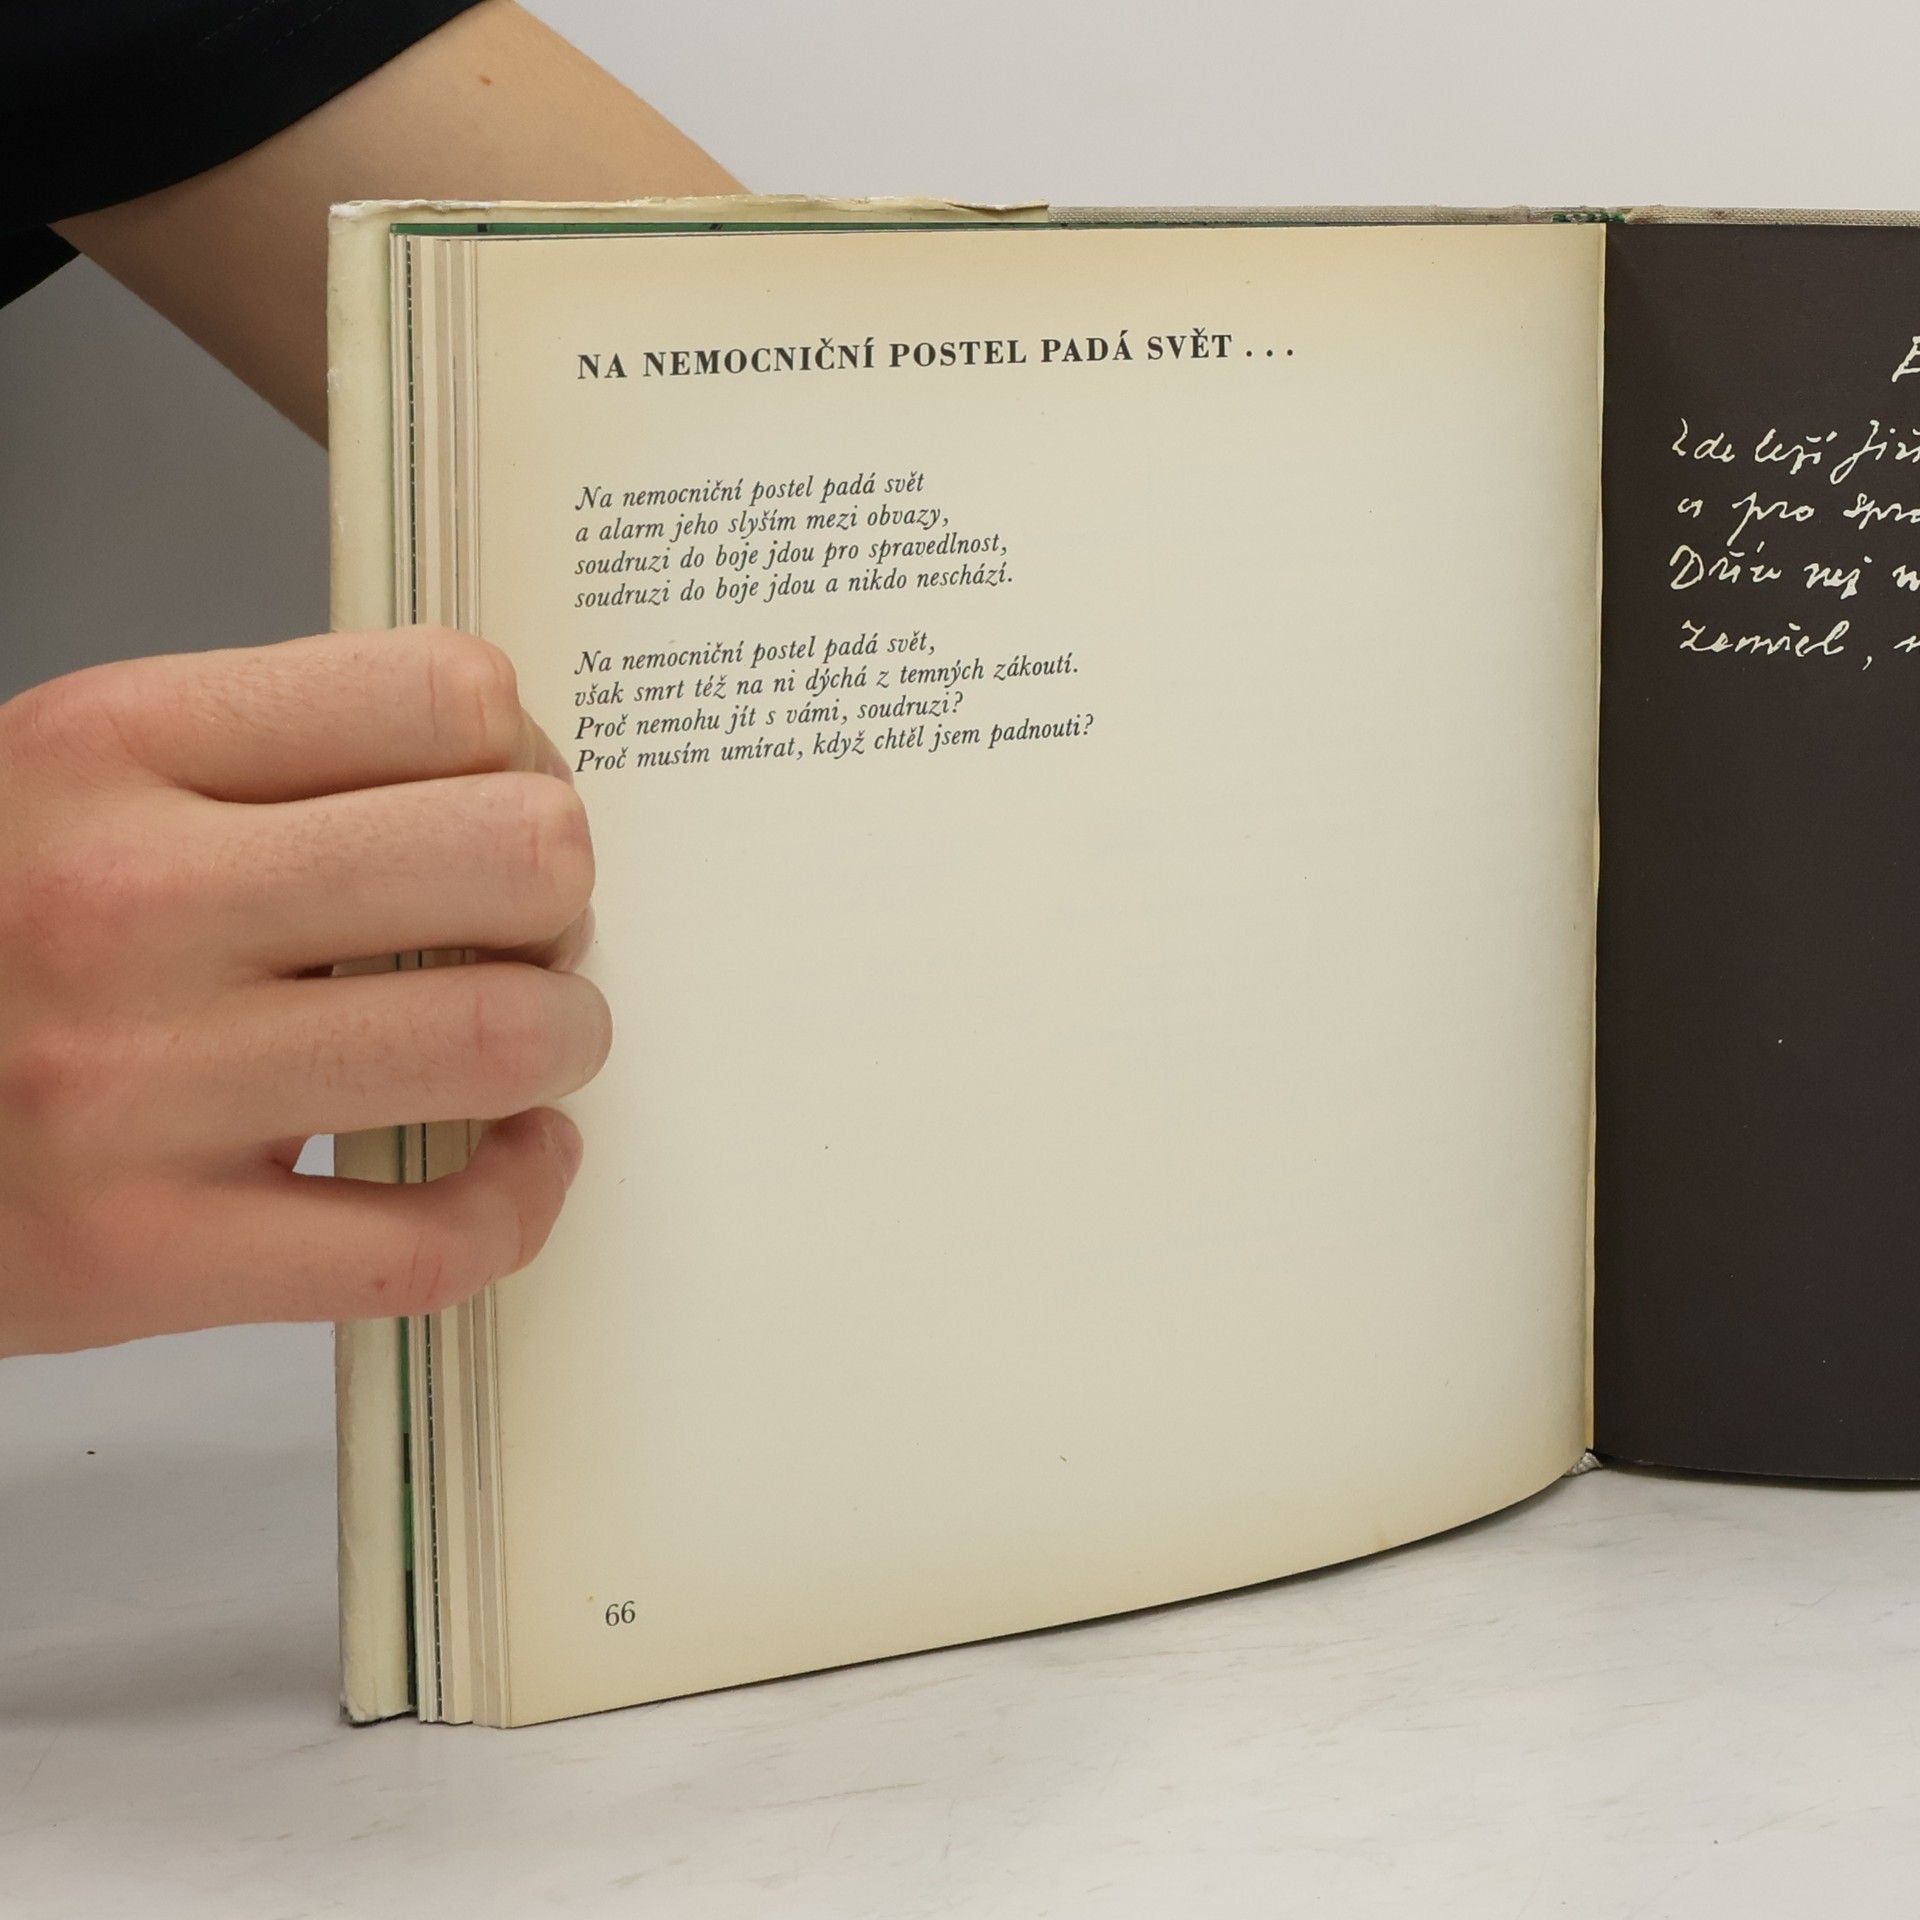 NA NEMOCNIČNÍ POSTEL PADÁ SVĚT . . .
Na nemocniční postel padá svět
a alarm jeho slyším mezi obvazy,
soudruzi do boje jdou pro spravedlnost,
soudruzi do boje jdou a nikdo neschází.
Na nemocniční postel padá svět,
však smrt též na ni dýchá z temných zákoutí.
Proč nemohu jít s vámi, soudruzi?
Proč musím umírat, když chtěl jsem padnouti?
66
Zde leží
a pro
Dřív než
zemřel,